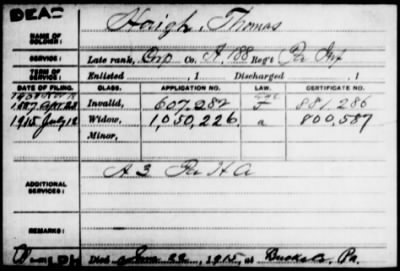 DEAD
Haigh, Thomas
NAME OF SOLDIER:
SERVICE: Late rank, Corp Co. A, 188 Reg't Pa Inf
TERM OF SERVICE: Enlisted , 1 Discharged , 1
DATE OF FILING. CLASS. APPLICATION NO. LAW. CERTIFICATE NO.
1887 Apr 28 Invalid, 607,282 F 881,286
1915 July 12 Widow, 1,050,226 a 800,587
Minor,
ADDITIONAL SERVICES: A 3 Pa H A
REMARKS:
Died June 22, 1915, at Bucks Co. Pa.